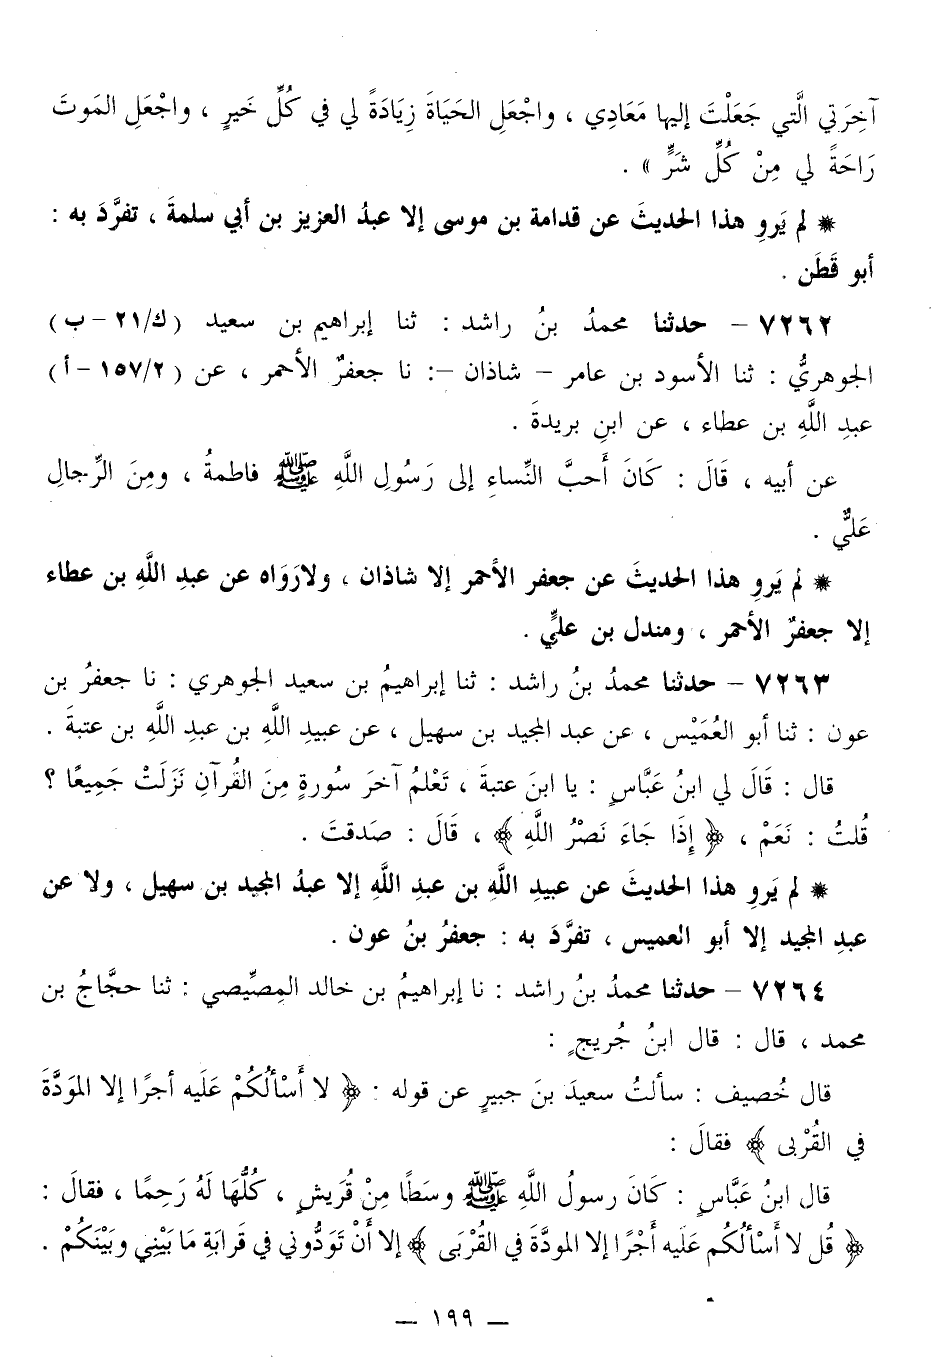 آخِرَتي الَّتي جَعَلْتَ إليها مَعَادِي ، واجْعَلِ الحَيَاةَ زِيَادَةً لي في كُلِّ خَيرٍ ، واجْعَلِ المَوتَ
رَاحَةً لي مِنْ كُلِّ شَرٍّ » .
* لم يَروِ هذا الحديثَ عن قدامة بن موسى إلا عبدُ العزيز بن أبي سلمةَ ، تفرَّدَ به :
أبو قَطَن .
٧٢٦٢ – حدثنا محمدُ بنُ راشد : ثنا إبراهيم بن سعيد (ك/٢١ – ب)
الجوهريُّ : ثنا الأسود بن عامر – شاذان –: نا جعفرٌ الأحمر ، عن (١٥٧/٢ – أ)
عبدِ اللَّهِ بن عطاء ، عن ابنِ بريدةَ .
عن أبيه ، قَالَ : كَانَ أَحبَّ النِّساءِ إلى رَسُولِ اللَّهِ ﷺ فاطمةُ ، ومِنَ الرِّجالِ
عَليٌّ .
* لم يَروِ هذا الحديثَ عن جعفر الأحمر إلا شاذان ، ولارَوَاه عن عبدِ اللَّهِ بن عطاء
إلا جعفرٌ الأحمر ، ومندل بن عليٍّ .
٧٢٦٣ – حدثنا محمدُ بنُ راشد : ثنا إبراهيمُ بن سعيد الجوهري : نا جعفرُ بن
عون : ثنا أبو العُمَيْس ، عن عبد المجيد بن سهيل ، عن عبيدِ اللَّهِ بن عبدِ اللَّهِ بن عتبةَ .
قال : قَالَ لي ابنُ عَبَّاسٍ : يا ابنَ عتبةَ ، تَعْلمُ آخرَ سُورةٍ مِنَ القُرآنِ نَزَلَتْ جَمِيعًا ؟
قُلتُ : نَعَمْ ، ﴿ إِذَا جَاءَ نَصْرُ اللَّهِ ﴾ ، قَالَ : صَدقتَ .
* لم يَروِ هذا الحديثَ عن عبيدِ اللَّهِ بن عبدِ اللَّهِ إلا عبدُ المجيد بن سهيل ، ولا عن
عبدِ المجيد إلا أبو العميس ، تفرَّدَ به : جعفرُ بنُ عون .
٧٢٦٤ – حدثنا محمدُ بنُ راشد : نا إبراهيمُ بن خالد المِصِّيصي : ثنا حجَّاجُ بن
محمد ، قال : قال ابنُ جُريجٍ :
قال خُصيف : سألتُ سعيدَ بنَ جبيرٍ عن قوله : ﴿ لا أَسْألُكُمْ عَلَيه أجرًا إلا المَودَّةَ
في القُرْبى ﴾ فقالَ :
قال ابنُ عَبَّاسٍ : كَانَ رسولُ اللَّهِ ﷺ وسَطًا مِنْ قُرَيشٍ ، كُلُّهَا لَهُ رَحِمًا ، فقالَ :
﴿ قُل لا أَسْألُكُم عَلَيه أَجْرًا إلا المودَّة في القُرْبَى ﴾ إلا أَنْ تَوَدُّوني في قَرابَةِ مَا بَيْنِي وبَيْنَكُمْ .
– ١٩٩ –